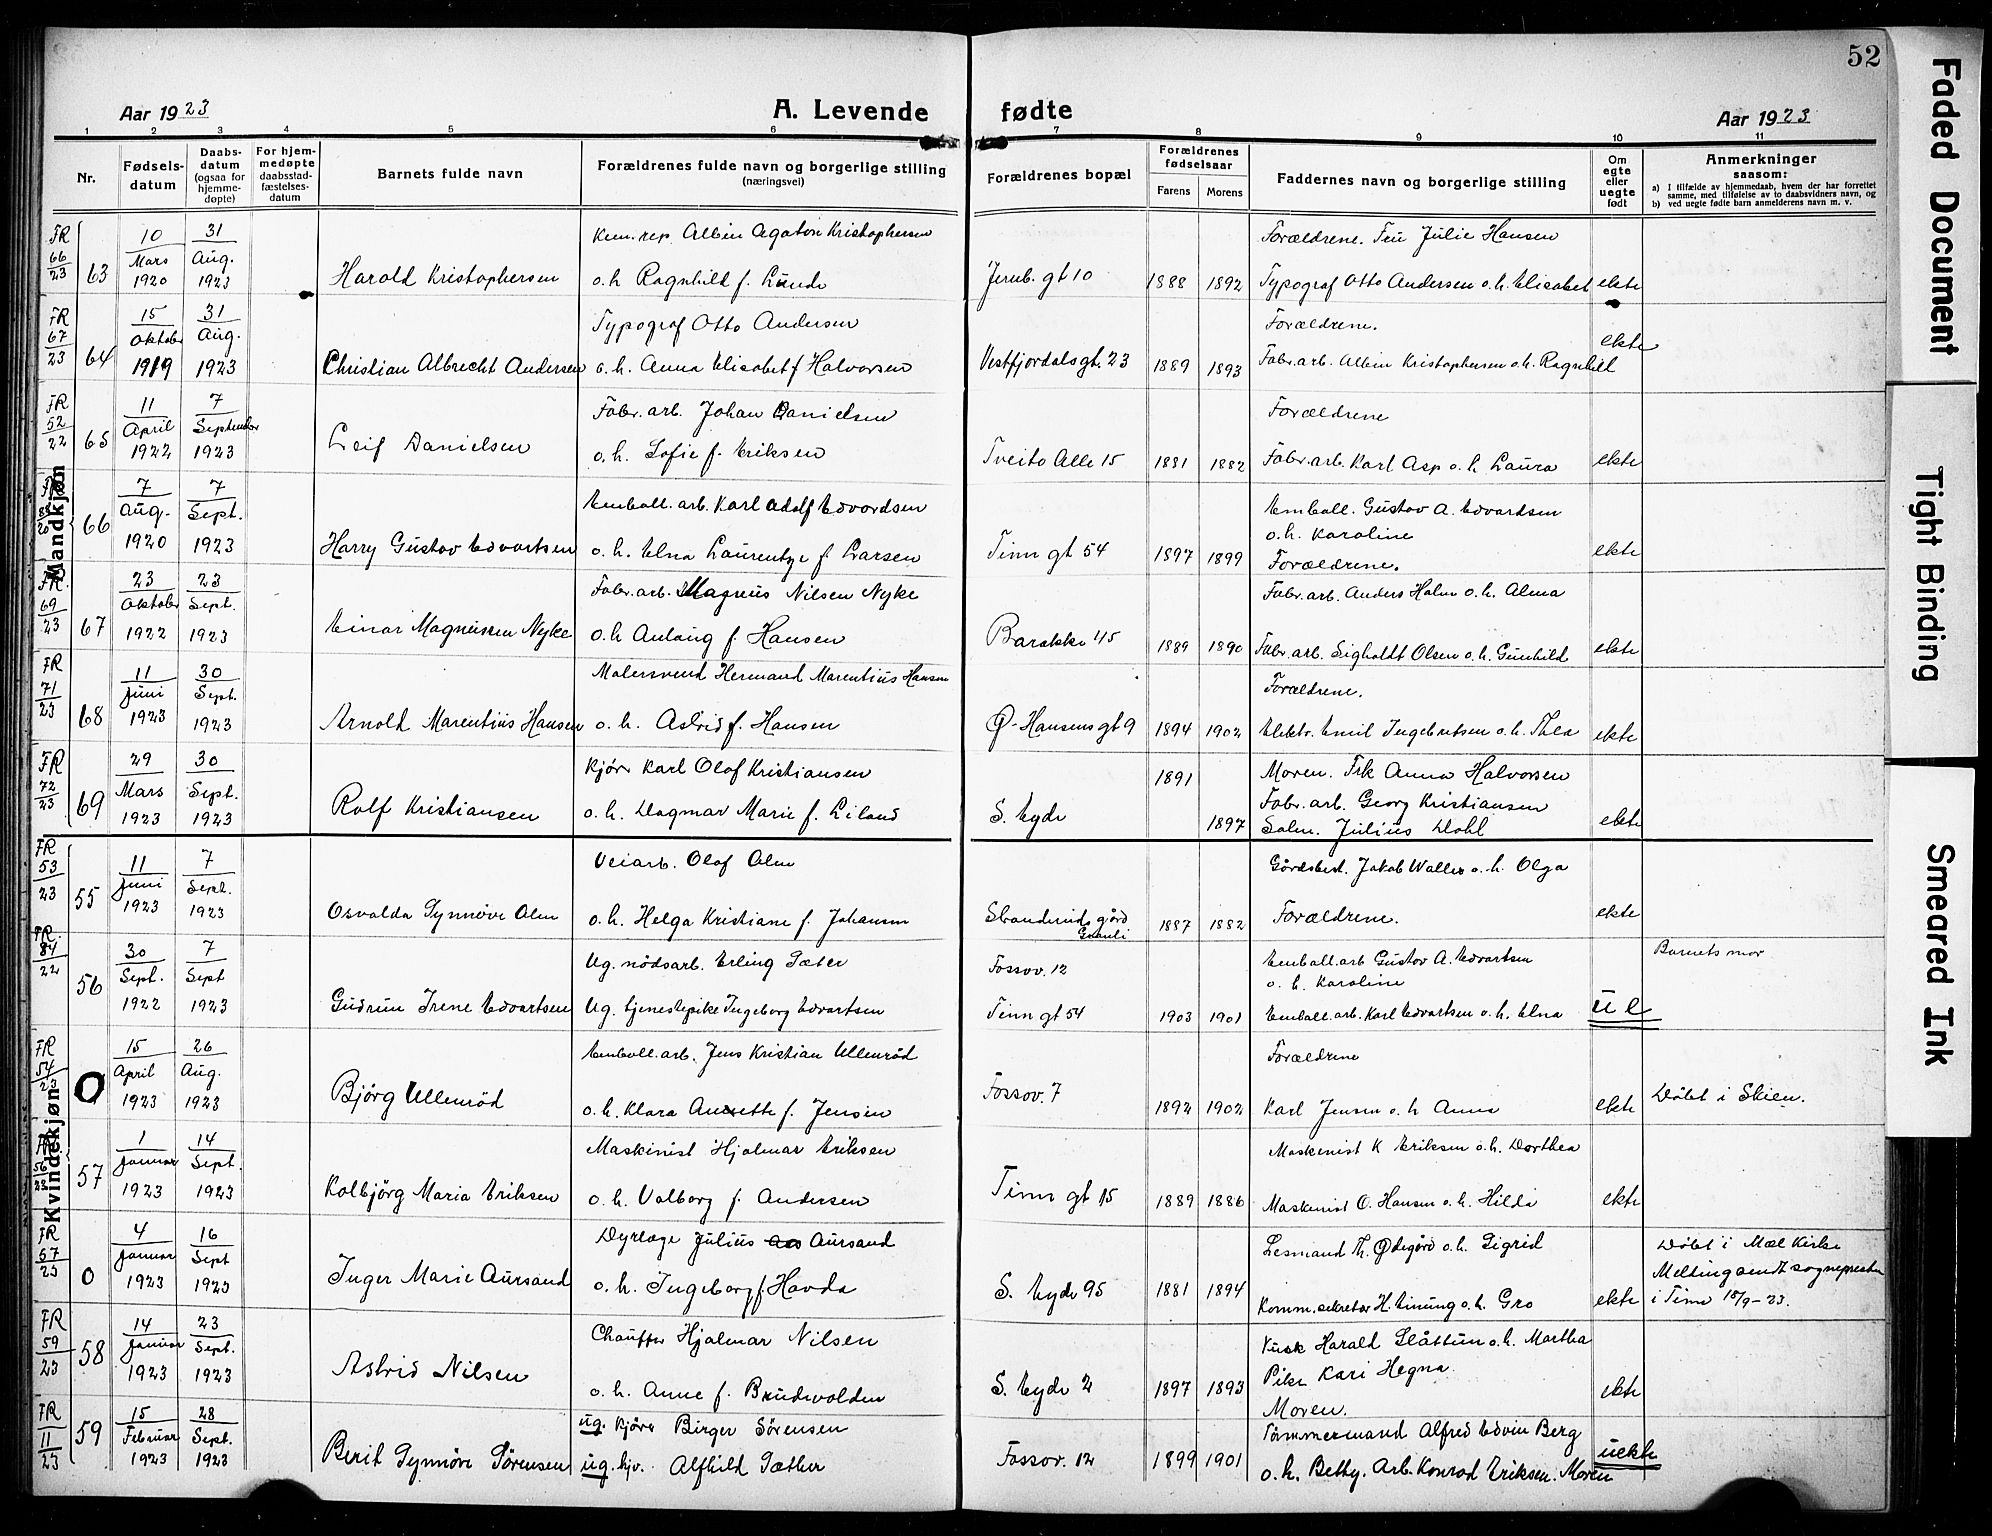 52
Aar 1923
A. Levende
fødte
Aar 1923
1 2 3 4 5 6 7 8 9 10 11
Nr.
Fødsels-
datum
Daabs-
datum
(ogsaa for
hjemme-
døpte)
For hjem-
medøpte
daabsstad-
fæstelses-
datum
Barnets fulde navn
Forældrenes fulde navn og borgerlige stilling
(næringsvei)
Forældrenes bopæl
Forældrenes
fødselsaar
Farens Morens
Faddernes navn og borgerlige stilling
Om
egte
eller
uegte
født
Anmerkninger
saasom:
a) I tilfælde av hjemmedaab, hvem der har forrettet
samme, med tilføielse av to daabsvidners navn, og
b) ved uegte fødte barn anmelderens navn m. v.
Mandkjøn
FR 66/23 63
10 Mars 1920
31 Aug. 1923
Harald Kristophersen
Kem. rep. Albin Agaton Kristophersen
o.h. Ragnhild f. Lunde
Jernb. gt 10
1888 1892
Forældrene. Fru Julie Hansen
Typograf Otto Andersen o.h. Elisabet
ekte
FR 67/23 64
15 Oktober 1919
31 Aug. 1923
Christian Albrecht Andersen
Typograf Otto Andersen
o.h. Anna Elisabet f Halvorsen
Vestfjordalsgt. 23
1889 1893
Forældrene.
Fabr. arb. Albin Kristophersen o.h. Ragnhild
ekte
FR 52/22 65
11 April 1922
7 September 1923
Leif Danielsen
Fabr. arb. Johan Danielsen
o.h. Sofie f. Eriksen
Tveito Alle 15
1881 1882
Forældrene
Fabr. arb. Karl Asp o.h. Laura
ekte
FR 66
7 Aug. 1920
7 Sept. 1923
Harry Gustav Edvartsen
Emball. arb. Karl Adolf Edvardsen
o.h. Elna Laurentze f. Larsen
Tinn gt 54
1897 1899
Emball. Gustav A. Edvardsen
o.h. Karoline
Forældrene.
ekte
FR. 69/23 67
23 Oktober 1922
23 Sept. 1923
Einar Magnussen Nyke
Fabr. arb. Magnus Nilsen Nyke
o.h. Anlaug f. Hansen
Barakke 45
1889 1890
Fabr. arb. Anders Halm o.h. Alma
Fabr. arb. Sigholdt Olsen o.h. Gunhild
ekte
FR 71/23 68
11 Juni 1923
30 Sept. 1923
Arnold Marentius Hansen
Malersvend Hermand Marentius Hansen
o.h. Astrid f. Hansen
Ø-Hansens gt 9
1894 1902
Forældrene.
Elektr. Emil Ingebretsen o.h. Thea
ekte
FR 72/23 69
29 Mars 1923
30 Sept. 1923
Rolf Kristiansen
Kjører Karl Olaf Kristiansen
o.h. Dagmar Marie f. Liland
S. Eyde
1891 1897
Moren. Frk Anna Halvorsen
Fabr. arb. Georg Kristiansen
Salm. Julius Dahl
ekte
Kvindekjøn
FR 53/23 55
11 Juni 1923
7 Sept. 1923
Osvalda Synnøve Alm
Veiarb. Olaf Alm
o.h. Helga Kristiane f. Johansen
1887 1882
Gårdsbest. Jakob Waller o.h. Olga
Forældrene.
ekte
FR. 84/22 56
30 Sept. 1922
7 Sept 1923
Gudrun Irene Edvartsen
Ug. nødsarb. Erling Sæter
Ug. tjenestepike Ingeborg Edvartsen
Fossov. 12
Tinn gt 54
1903 1901
Emball. arb Gustav A. Edvartsen
o.h. Karoline
Emball. arb. Karl Edvartsen o.h. Elna
u e
Barnets mor
FR 54/23 0
15 April 1923
26 Aug. 1923
Bjørg Ullenrød
Emball. arb. Jens Kristian Ullenrød
o.h. Klara Anette f. Jensen
Fossov. 7
1892 1902
Forældrene
Karl Jensen o.h Anna
ekte
Døbt i Skien.
FR. 56/23 57
1 Januar 1923
14 Sept. 1923
Kolbjørg Maria Eriksen
Maskinist Hjalmar Eriksen
o.h. Valborg f. Andersen
Tinn gt 15
1889 1886
Maskinist K Eriksen o.h. Dorthea
Maskinist O. Hansen o.h. Hilda
ekte
FR 57/23 0
4 Januar 1923
16 Sept 1923
Inger Marie Aursand
Dyrlæge Julius Aursand
o.h. Ingeborg f. Havda
S. Eyde 95
1881 1894
Lesmand Th. Ødegård o.h. Sigrid
Komm. sekretær H. Einung o.h. Gro
ekte
Døbt i Mæl Kirke
Melding sendt sognepresten
i Tinn 15/9-23.
FR 59/23 58
14 Januar 1923
23 Sept. 1923
Astrid Nilsen
Chauffør Hjalmar Nilsen
o.h. Anne f. Brudevolden
S. Eyde 2
1897 1893
Kusk Harald Slåttun o.h. Martha
Pike Kari Hegna.
Moren.
ekte
FR 11/23 59
15 Februar 1923
28 Sept. 1923
Berit Synnøve Sørensen
ug. kjører Birger Sørensen
ug. hjv. Alfhild Sæther
Fossov. 12
1899 1901
Tømmermand Alfred Edvin Berg
o.h. Betty. Arb. Konrad Eriksen. Moren
uekte
Faded Document
Tight Binding
Smeared Ink